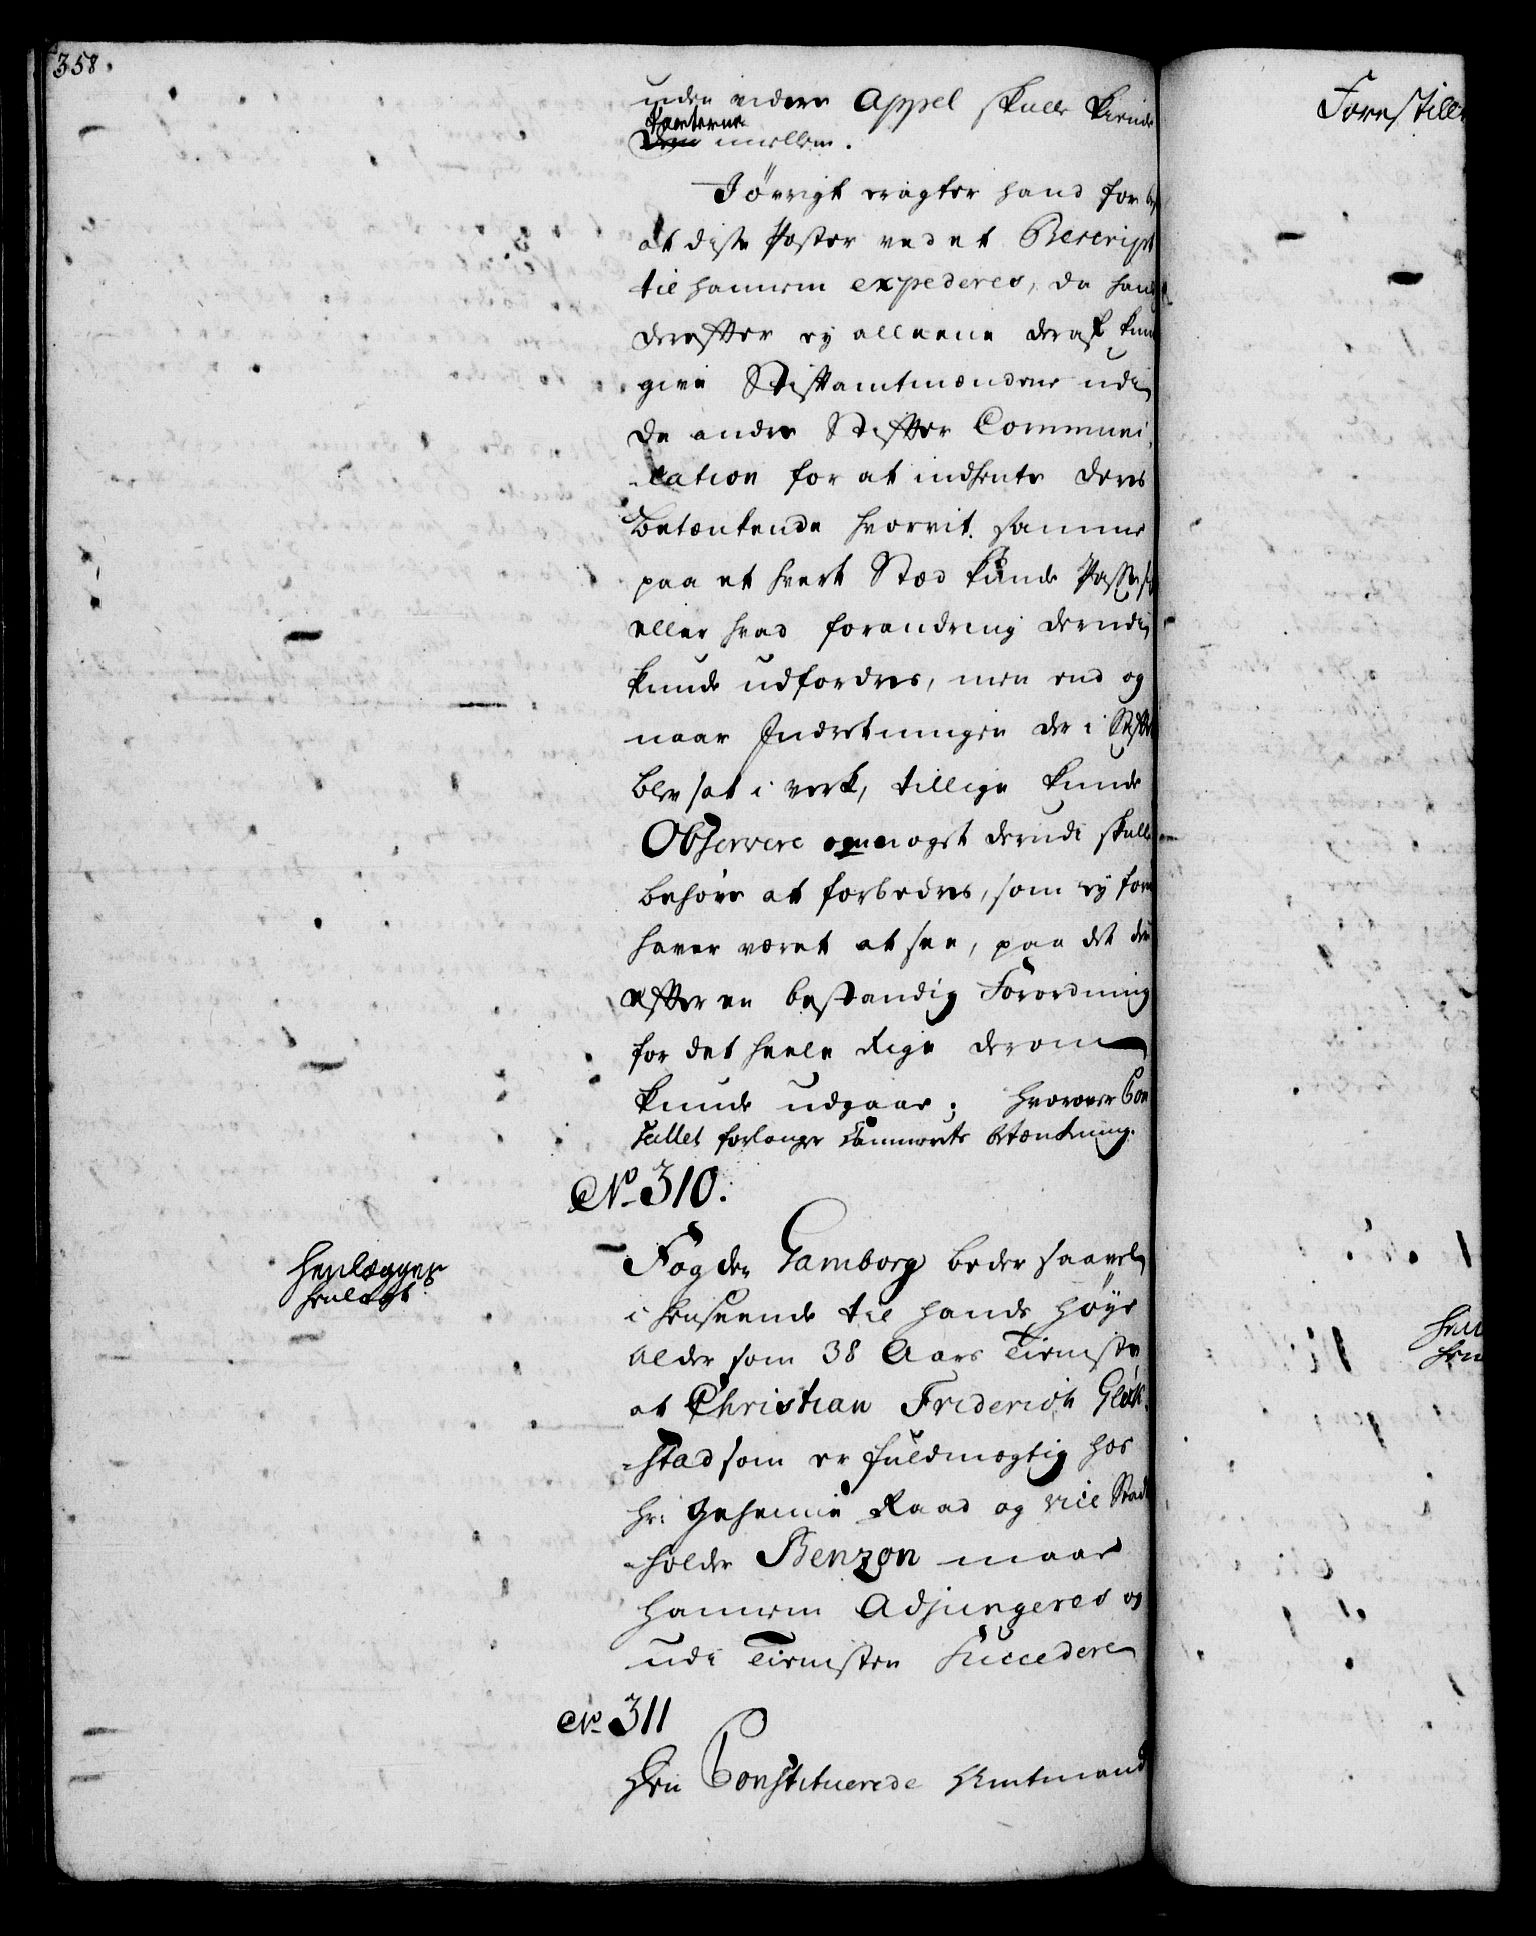 358.
uden videre Appel skulle kiende
Parterne
dem imellem.
I øvrigt eragter hand for
at disse Poster ved et Rescript
til hannem expederes, da hand
derefter ey alleene deraf kun
give Stiftamtmændene udi
de andre Stifter Communi
-cation for at indhente deres
betænkende hvorvit samme
paa et hvert Stæd kunde Passe
eller hvad forandring derudi
kunde udfordres, men end og
naar Indretningen der i Stiftet
blev sat i verk, tillige kunde
Observere om noget derudi skulle
behøve at forbedres, som ey for
haver været at see, paa det der
efter en bestandig Forordning
for det heele Rige derom
kunde udgaae; hvorover Can
celliet forlanger Cammerets betænkning.
No 310.
Fogden Gamborg beder saavel
i henseende til hands høye
Alder som 38 Aars Tieniste
at Christian Friderich Glük
=stad som er fuldmægtig hos
Hr: Geheime Raad og vice Stad
=holder Benzon maae
hannem Adjungeres og
udi Tienisten Succedere
Henlægges
henlagt
No 311
Den Constituerede Amtmand
Forestill